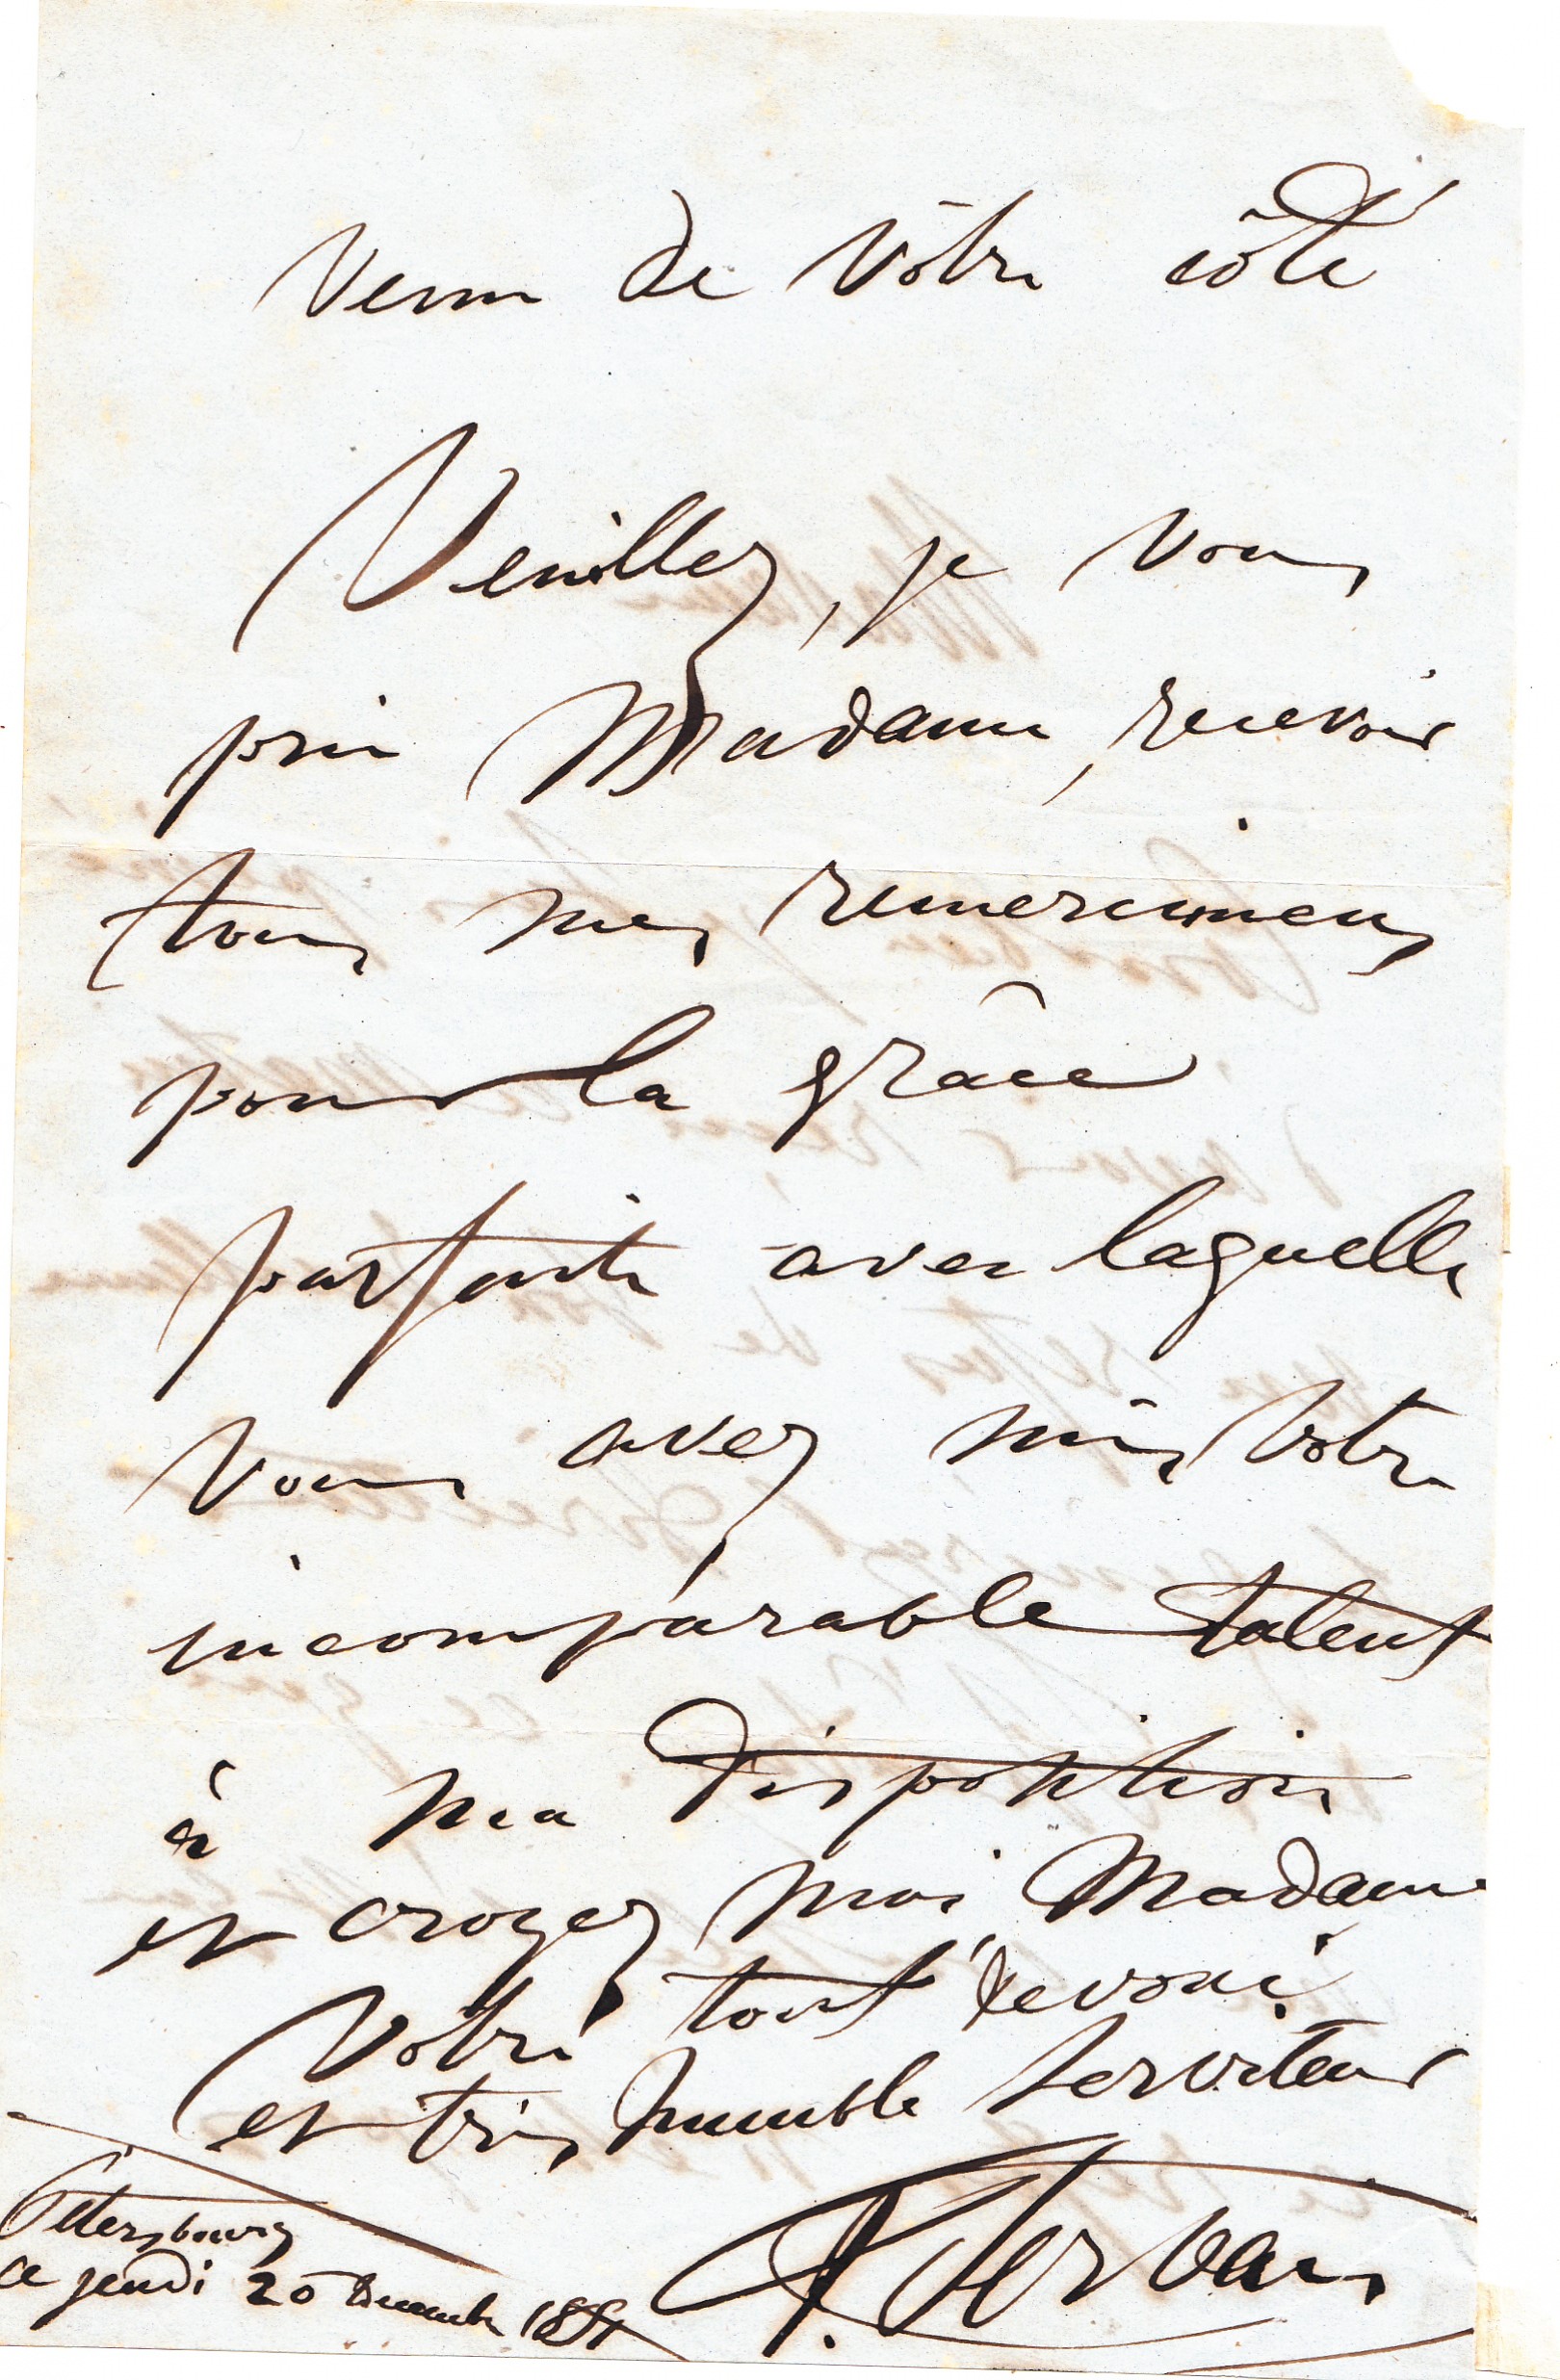 venu de vôtre côté
Veuillez, je vous
prie Madame, recevoir
tous mes remercimens
pour la grâce
parfaite avec laquelle
vous avez mis votre
incomparable talent
à ma disposition
et croyez moi Madame
Votre tout dévoué
et très humble serviteur
F. Servais
Petersbourg
ce jeudi 20 Decembre 1851